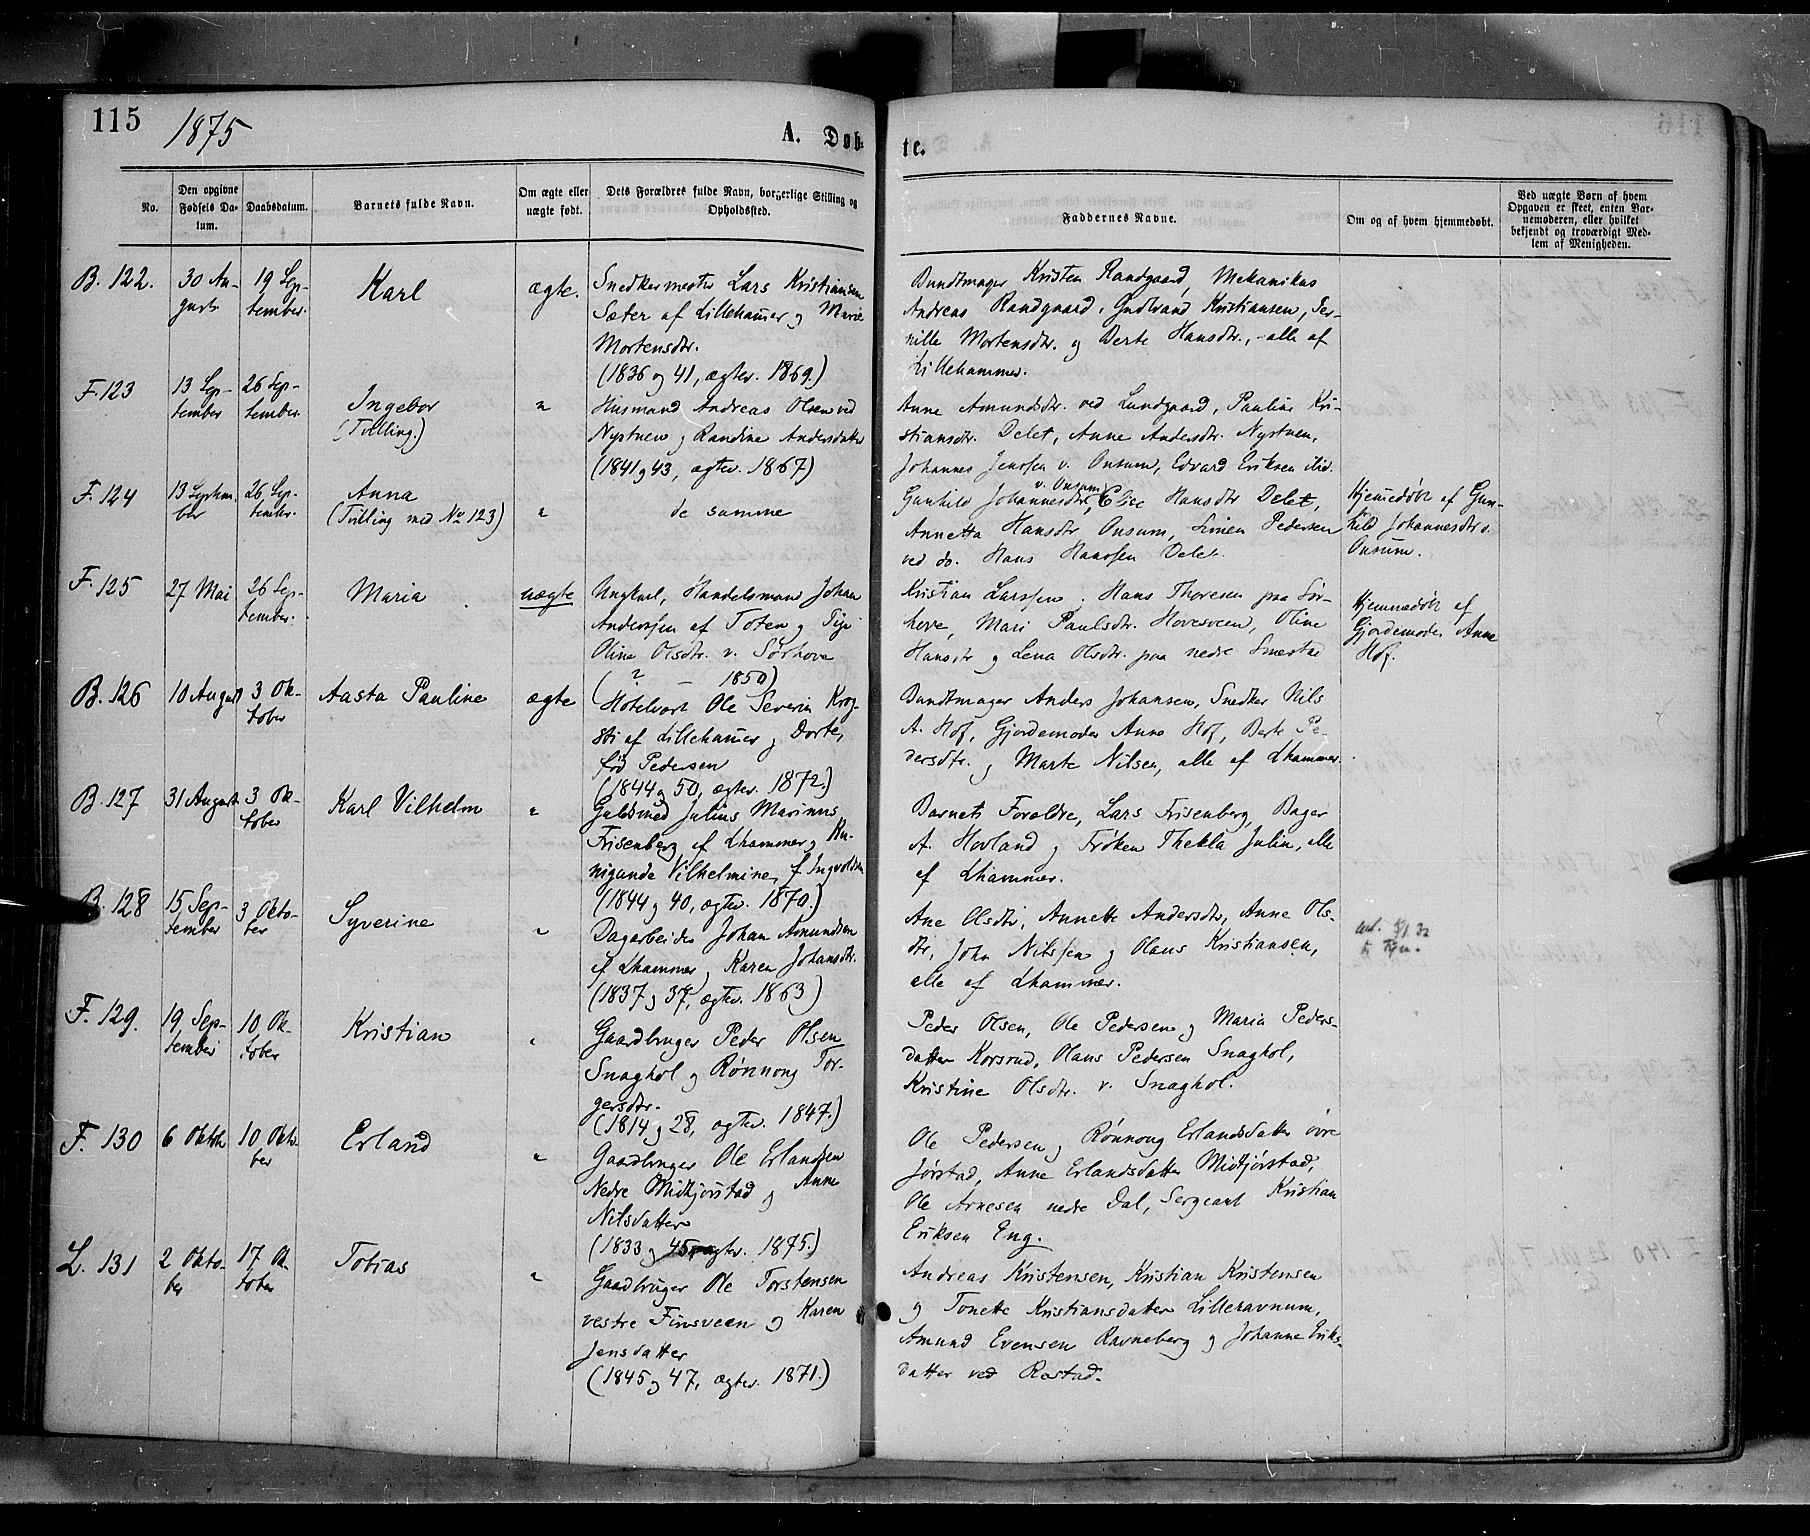 115
1875
A. Døb-
te.
No.
Den opgivne
Fødsels Da-
tum.
Daabsdatum.
Barnets fulde Navn.
Om ægte eller
uægte født.
Dets Forældres fulde Navn, borgerlige Stilling og
Opholdssted.
Faddernes Navne.
Om og af hvem hjemmedøbt.
Ved uægte Børn af hvem
Opgaven er skeet, enten Bar-
nemoderen, eller hvilket
bekjendt og troværdigt Med-
lem af Menigheden.
B. 122.
30 Au-
gust
19 Sep-
tember.
Karl
ægte.
Snedkermester Lars Kristiansen
Sæter af Lillehamer og Marie
Mortensdtr.
(1836 og 41, ægtev. 1869.)
Bundtmager Kristen Randgaard, Mekanikus
Andreas Randgaard, Gudbrand Kristiansen, Per-
nille Mortensdtr. og Berte Hansdtr., - alle af
Lillehammer.
F. 123
13 Sep-
tember
26 Sep-
tember.
Ingebor
(Tvilling.)
"
Husmand Andreas Olsen ved
Nystuen og Randine Andersdatter
(1841 og 43, ægtev. 1867)
Anne Amundsdtr. ved Lundgaard, Pauline Kri-
stiansdtr. Delet, Anne Andersdtr. Nystuen,
Johannes Jensen v. Onsum, Edvard Eriksen ibid.
F. 124
13 Septem-
ber
26 Sep-
tember.
Anna
(Tvilling med No 123)
"
de samme
v. Onsum
Gunhild Johannesdtr, Else Hansdtr Delet,
Annetta Hansdtr Onsum, Simen Pedersen
ved do. Hans Hanssen Delet.
Hjemedøbt af Gun-
hild Johannesdtr v.
Onsum.
F. 125
27 Mai
26 Sep-
tember.
Maria
uægte
Ungkarl, Handelsmand Johan
Anderssen af Toten og Pige
Oline Olsdtr. v. Sørhove
(? - 1850)
Kristian Larssen, Hans Thoresen paa Sør-
hove, Mari Paulsdtr. Hovesveen, Oline
Hansdtr og Lena Olsdtr. paa nedre Smestad
Hjemmedøbt af
Gjordemoder Anne
Hof.
B. 126
10 August
3 Ok-
tober
Aasta Pauline
ægte
Hotelvært Ole Severin Krog-
sti af Lillehamer og Dorte,
fød Pedersen
(1844 og 50, ægtev. 1872.)
Bundtmager Anders Johansen, Snedker Nils
A. Hof, Gjordemoder Anne Hof, Berte Pe-
dersdtr. og Marte Nilsen, alle af Lhammer.
B. 127
31 August
3 Ok-
tober
Karl Vilhelm
"
Guldsmed Julius Marinus
Frisenberg af Lhammer og Ku-
nigunde Vilhelmine, f Ingvoldsen
(1844 og 40, ægtev. 1870.)
Barnets Forældre, Lars Frisenberg, Bager
A. Hovland og Frøken Thekla Julin, alle
af Lhammer.
B. 128
15 Sep-
tember
3 Okto-
ber
Syverine
"
Dagarbeider Johan Amundsen
af Lhammer og Karen Johansdtr.
(1837 og 37, ægtev. 1863)
Ane Olsdtr, Annette Andersdtr, Anne Ols-
dtr, John Nilssen og Olaus Kristiansen,
alle af Lhammer.
F. 129.
19 Sep-
tember
10 Ok-
tober
Kristian
"
Gaardbruger Peder Olsen
Snaghol og Rønnoug Tor-
gersdtr.
(1814 og 28, ægtev. 1847.)
Peder Olsen, Ole Pedersen og Maria Peders-
datter Korsrud, Olaus Pedersen Snaghol,
Kristine Olsdtr. v. Snaghol.
F. 130
6 Oktob.
10 Okto-
ber
Erland
"
Gaardbruger Ole Erlandsen
Nedre Midtjørstad og Anne
Nilsdatter
(1833 og 45, ægtev. 1875.)
Ole Pedersen, Rønnoug Erlandsdatter øvre
Jørstad, Anne Erlandsdatter Midtjørstad,
Ole Arnesen nedre Dal, Sergeant Kristian
Eriksen Eng.
L. 131
2 Okto-
ber
17 Ok-
tober
Tobias
"
Gaardbruger Ole Torstensen
vestre Finsveen og Karen
Jensdatter
(1845 og 47, ægtev. 1871.)
Andreas Kristensen, Kristian Kristensen
og Tonette Kristiansdatter Lilleravnum,
Amund Evensen Ravneberg og Johanne Eriks-
datter ved Rostad.